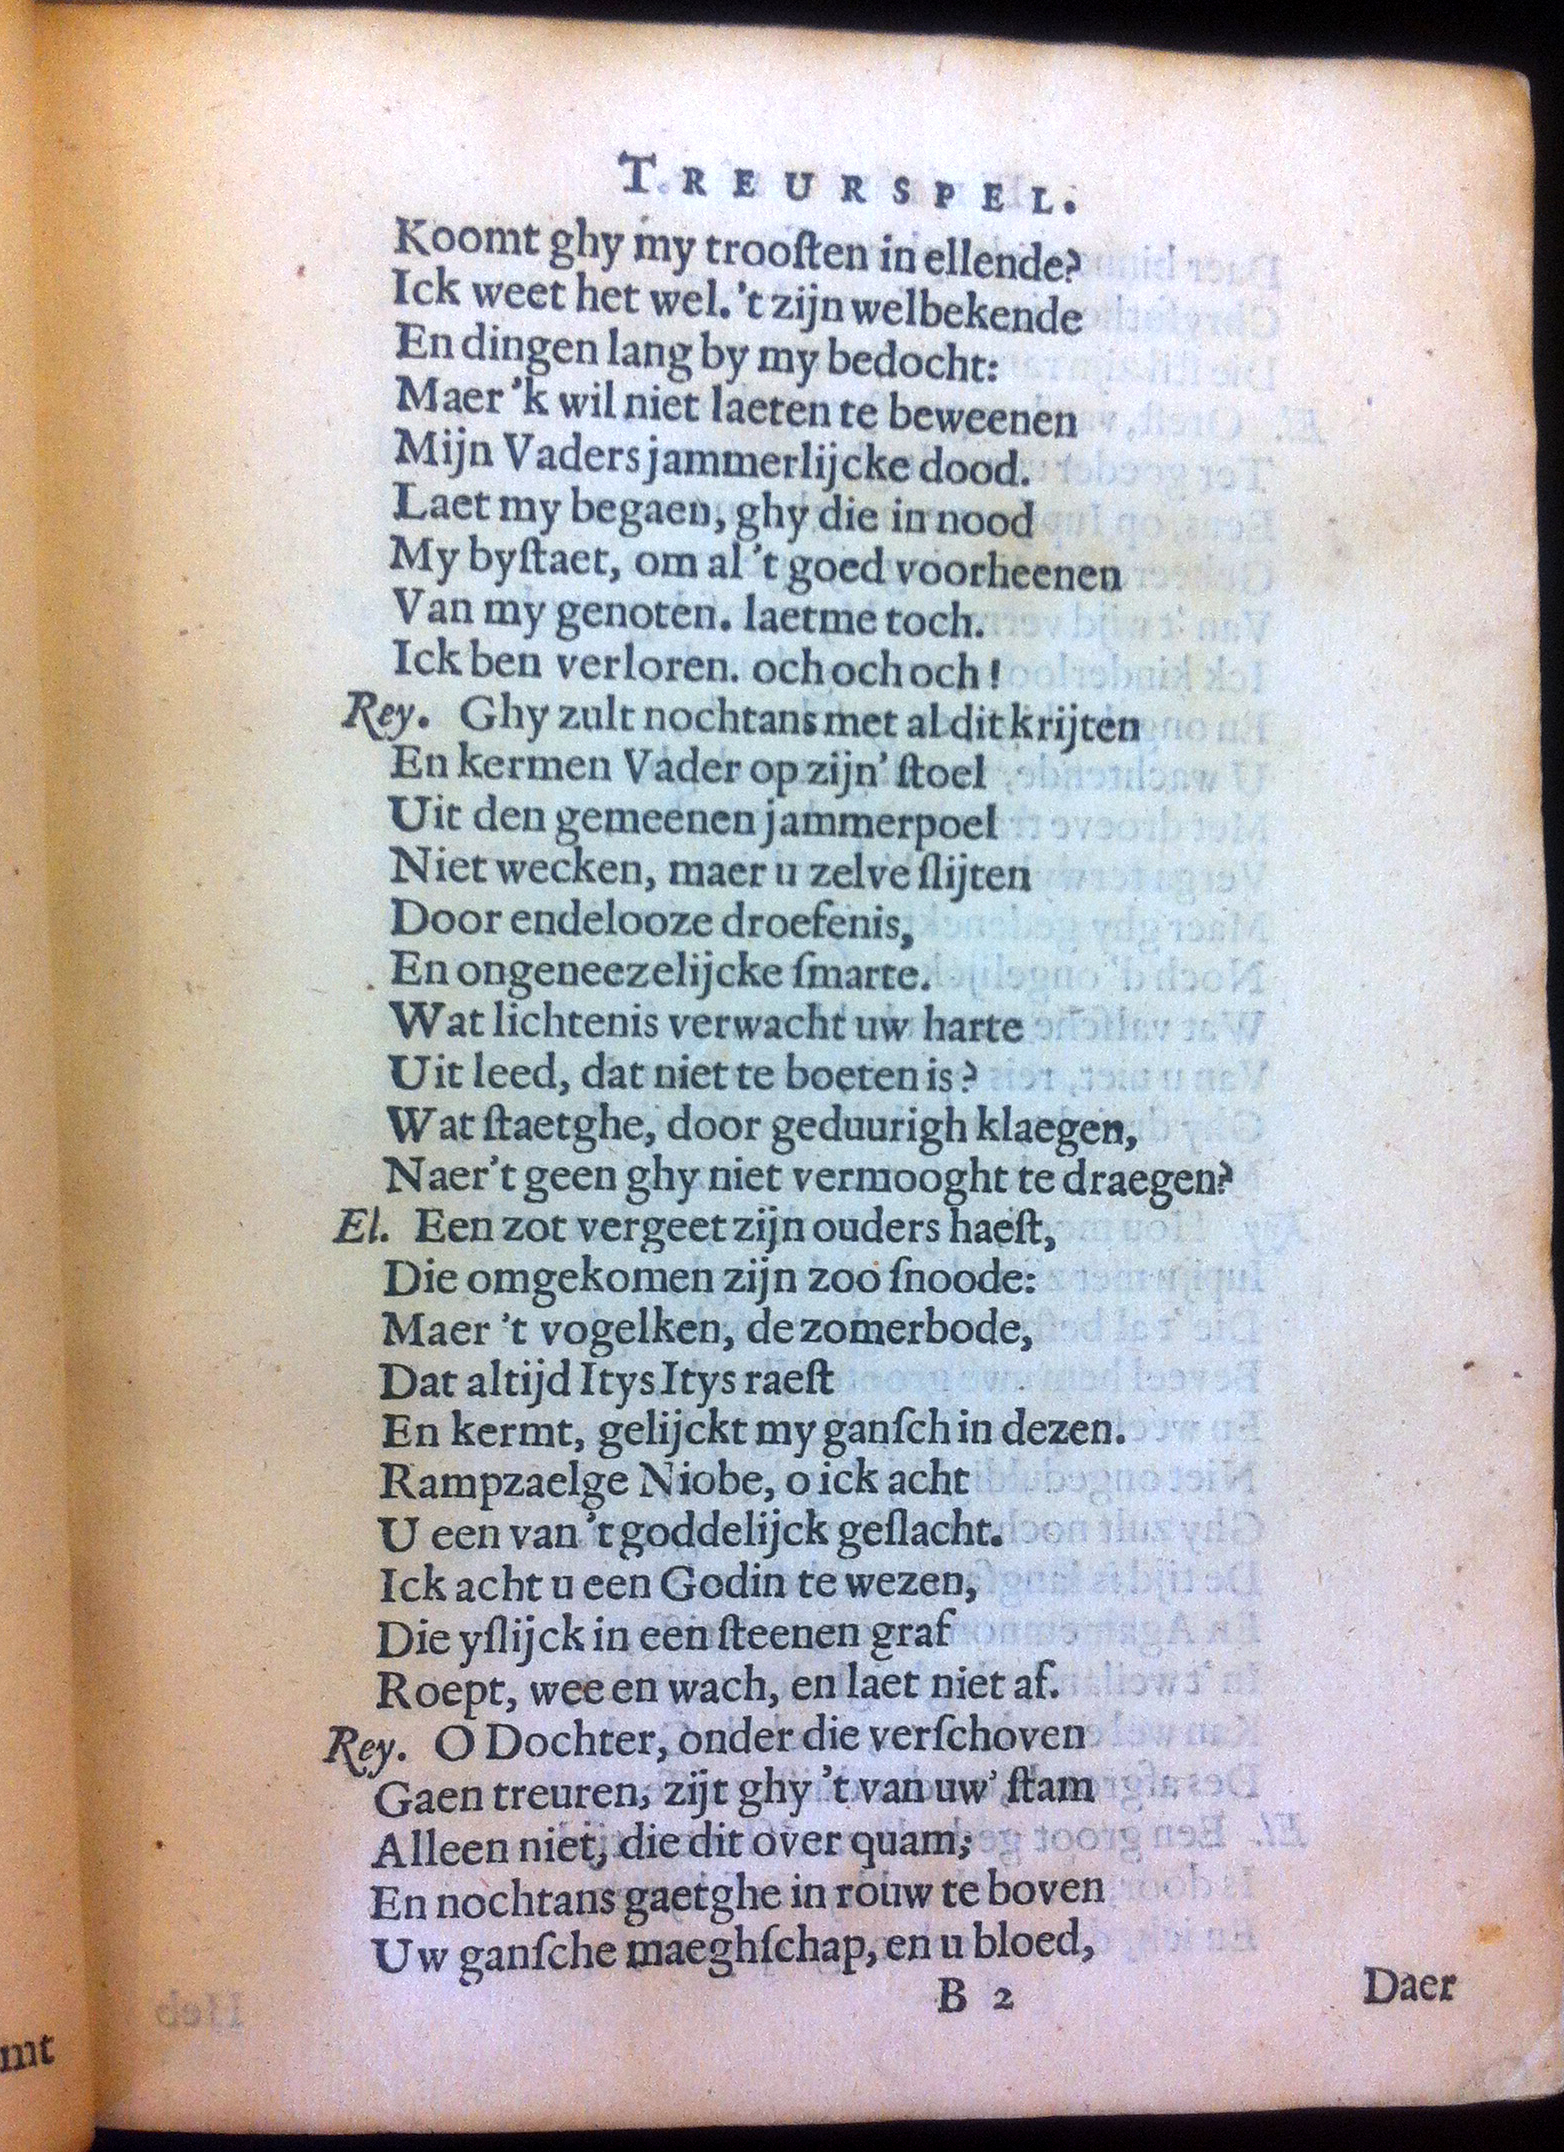 TREURSPEL.
Koomt ghy my trooſten in ellende?
Ick weet het wel. 't zijn welbekende
En dingen lang by my bedocht:
Maer 'k wil niet laeten te beweenen
Mijn Vaders jammerlijcke dood.
Laet my begaen, ghy die in nood
My byſtaet, om al 't goed voorheenen
Van my genoten. laetme toch.
Ick ben verloren. och och och!
Rey. Ghy zult nochtans met al dit krijten
En kermen Vader op zijn' ſtoel
Uit den gemeenen jammerpoel
Niet wecken, maer u zelve ſlijten
Door endelooze droefenis,
En ongeneezelijcke ſmarte.
Wat lichtenis verwacht uw harte
Uit leed, dat niet te boeten is?
Wat ſtaetghe, door geduurigh klaegen,
Naer't geen ghy niet vermooght te draegen?
El. Een zot vergeet zijn ouders haeſt,
Die omgekomen zijn zoo ſnoode:
Maer 't vogelken, de zomerbode,
Dat altijd Itys Itys raeſt
En kermt, gelijckt my ganſch in dezen.
Rampzaelge Niobe, o ick acht
U een van 't goddelijck geſlacht.
Ick acht u een Godin te wezen,
Die yſlijck in een ſteenen graf
Roept, wee en wach, en laet niet af.
Rey. O Dochter, onder die verſchoven
Gaen treuren, zijt ghy 't van uw' ſtam
Alleen niet, die dit over quam;
En nochtans gaetghe in rouw te boven
Uw ganſche maeghſchap, en u bloed,
B 2
Daer
mt